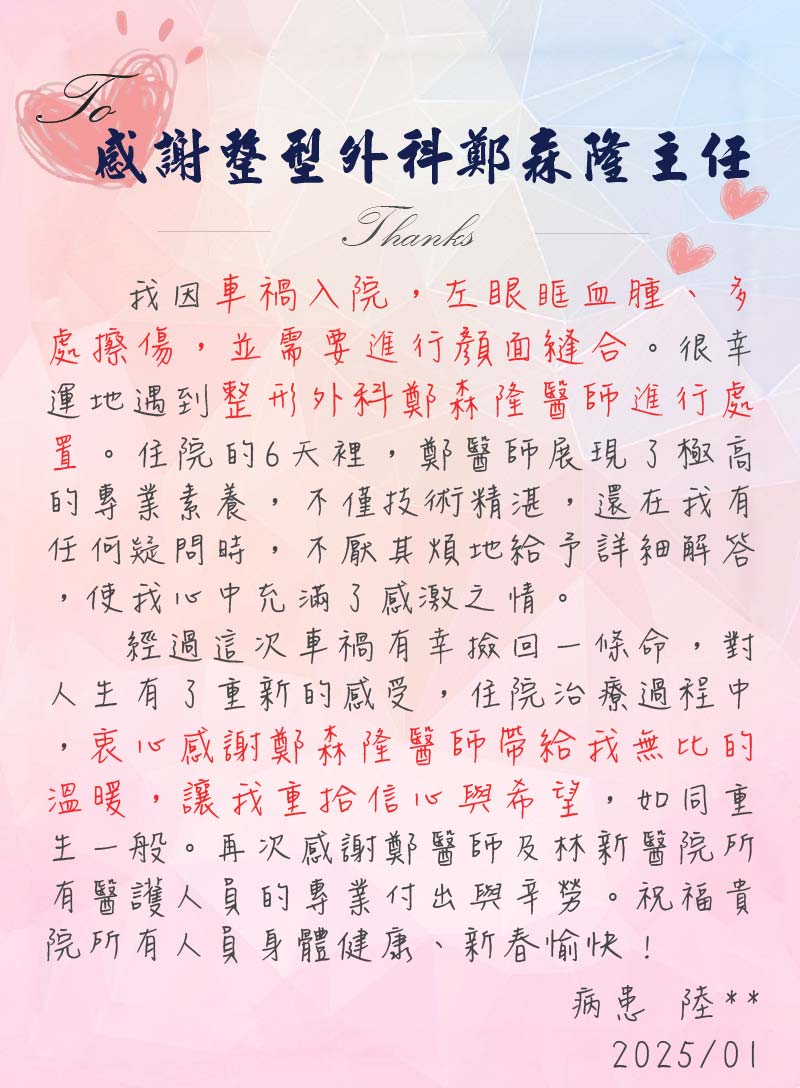 To
感謝整型外科鄭森隆主任
Thanks
我因車禍入院，左眼眶血腫、多
處擦傷，並需要進行顏面縫合。很幸
運地遇到整形外科鄭森隆醫師進行處
置。住院的6天裡，鄭醫師展現了極高
的專業素養，不僅技術精湛，還在我有
任何疑問時，不厭其煩地給予詳細解答
，使我心中充滿了感激之情。
經過這次車禍有幸撿回一條命，對
人生有了重新的感受，住院治療過程中
，衷心感謝鄭森隆醫師帶給我無比的
溫暖，讓我重拾信心與希望，如同重
生一般。再次感謝鄭醫師及林新醫院所
有醫護人員的專業付出與辛勞。祝福貴
院所有人員身體健康、新春愉快！
病患 陸**
2025/01